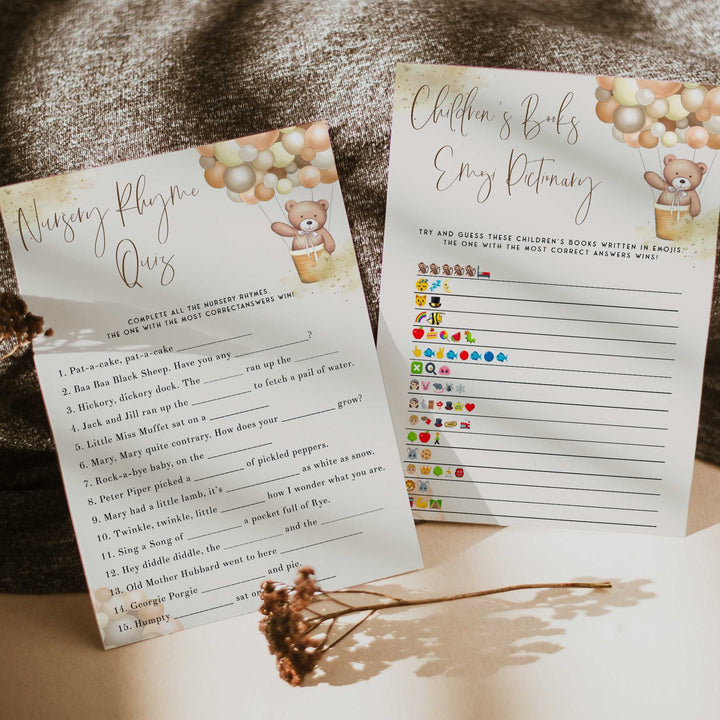 Nursery Rhyme
Quiz
COMPLETE ALL THE NURSERY RHYMES,
THE ONE WITH THE MOST CORRECTANSWERS WIN!
1. Pat-a-cake, pat-a-cake ______?
2. Baa Baa Black Sheep. Have you any ______
3. Hickory, dickory dock. The ______ ran up the ______
4. Jack and Jill ran up the ______ to fetch a pail of water.
5. Little Miss Muffet sat on a ______
6. Mary, Mary quite contrary. How does your ______ grow?
7. Rock-a-bye baby, on the ______
8. Peter Piper picked a ______ of pickled peppers.
9. Mary had a little lamb, it's ______ as white as snow.
10. Twinkle, twinkle, little ______ how I wonder what you are.
11. Sing a Song of ______ a pocket full of Rye.
12. Hey diddle diddle, the ______ and the ______
13. Old Mother Hubbard went to here ______
14. Georgie Porgie ______ and pie.
15. Humpty ______ sat on
Children's Books
Emoji Dictionary
TRY AND GUESS THESE CHILDREN'S BOOKS WRITTEN IN EMOJIS,
THE ONE WITH THE MOST CORRECT ANSWERS WINS!